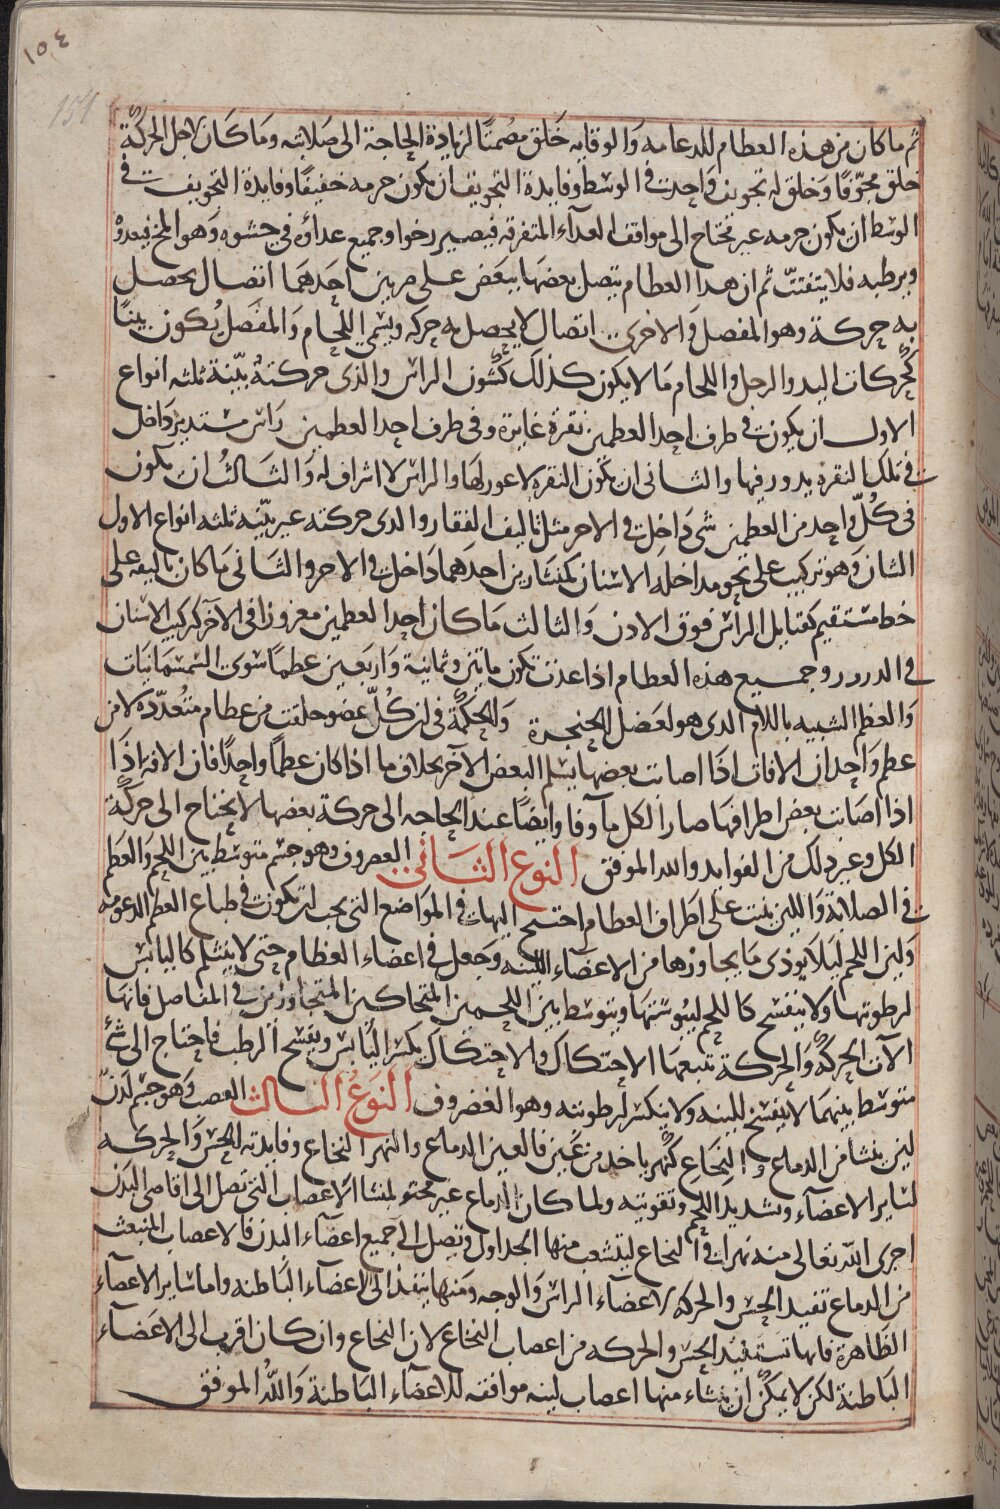 ١٥٤
154
ثم ما كان من هذه العظام للدعامه والوقايه خلق مصمتا لزيادة الحاجة الى صلابته وما كان لاجل الحركة
خلق مجوفا وخلق له تجويف واحد في الوسط وفايدة التجويف ان يكون جرمه خفيفا وفايدة التجويف في
الوسط ان يكون جرمه غير محتاج الى مواقف الغدآء المتفرقه فيصير رخوا وجميع عداؤه في حشوه وهو المخ فيعدوه
ويرطبه فلا يتفتت ثم ان هدا العظام يتصل بعضها ببعض على ضربين احدهما اتصال يحصل
به حركة وهو المفصل والاخرى اتصال لا يحصل به حركه ويسمى اللحام والمفصل يكون بينا
كحركات اليد والرجل واللحام ما لا يكون كذلك كشون الراس والذى حركته بينة ثلثه انواع
الاول ان يكون في طرف احد العظمين نقرة غايرة وفى طرف احد العظمين راس مستدير داخل
في تلك النقره يدور فيها والثانى ان تكون النقره لا غور لها والراس لا اشراف له والثالث ان يكون
فى كل واحد من العظمين شى داخل في الاخر مثل تاليف الفقار والدى حركته غير بينه ثلثه انواع الاول
الشان وهو تركيب على نحو مداخله الاسنان كمنشارين احدهما داخل في الاخر والثانى ما كان تاليفه على
خط مستقيم كقبايل الراس فوق الادن والثالث ما كان احد العظمين مغروزا فى الآخر كتركيب الاسنان
في الدرور وجميع هذه العظام اذا عدت تكون مايتين وثمانية واربعين عظما سوى السمسمانيات
والعظم الشبيه باللام الدى هو لعضل الحنجرة والحكمة فى ان كل عضو خلقت من عظام متعدده لا من
عظم واحد ان الافات اذا اصابت بعضها يسلم البعض الآخر بخلاف ما اذا كان عظما واحدا فان الافه اذا
اذا اصابت بعض اطرافها صار الكل مآوفا وايضا عند الحاجه الى حركة بعضها لا يحتاج الى حركة
الكل وغير دلك من الفوايد والله الموفق النوع الثانى الغضروف وهو جسم متوسط بين اللحم والعظم
في الصلابة واللين ينبت على اطراف العظام احتيج اليها في المواضع التى يجب ان يكون في طباع العظم الدعومه
ولين اللحم ليلا يوذى ما يجاوزها من الاعضاء اللينه وجعل فى اعضاء العظام حتى لا ينثلم كاليابس
لرطوبتها ولا ينفسح كاللحم ليبوستها ويتوسط بين اللحمين المتحاكين المتجاورين في المفاصل فانها
الآن الحركة والحركة تتبعها الاحتكاك والاحتكاك يكسر اليابس ويفسح الرطب فاحتاج الى شئ
متوسط بينهما لا ينفسخ للينه ولا ينكسر لرطوبته وهو الغضروف النوع الثالث العصب وهو جسم لدن
لين ينشا من الدماع والنخاع كنهر ياخد من عين فالعين الدماع والنهر النخاع وفايدته الحس والحركه
لساير الاعضآء وتشديد اللحم وتقويته ولما كان الدماع غير محتو لمنشا الاعصاب التى تصل الى اقاصى البدن
اجرى الله تعالى منه نهرا في النخاع ليتشعب منها الجداول وتصل الى جميع اعضآء البدن فالاعصاب المنبعث
من الدماع تفيد الحس والحركه لاعضآء الراس والوجه ومنها ينفذ الى الاعضآء الباطنه واما ساير الاعضآء
الظاهرة فانها تستفيد الحس والحركه من اعصاب النخاع لان النخاع وان كان اقرب الى الاعضآء
الباطنة لكن لا يمكن ان ينشاء منها اعصاب لينه موافقه للاعضاء الباطنة والله الموفق